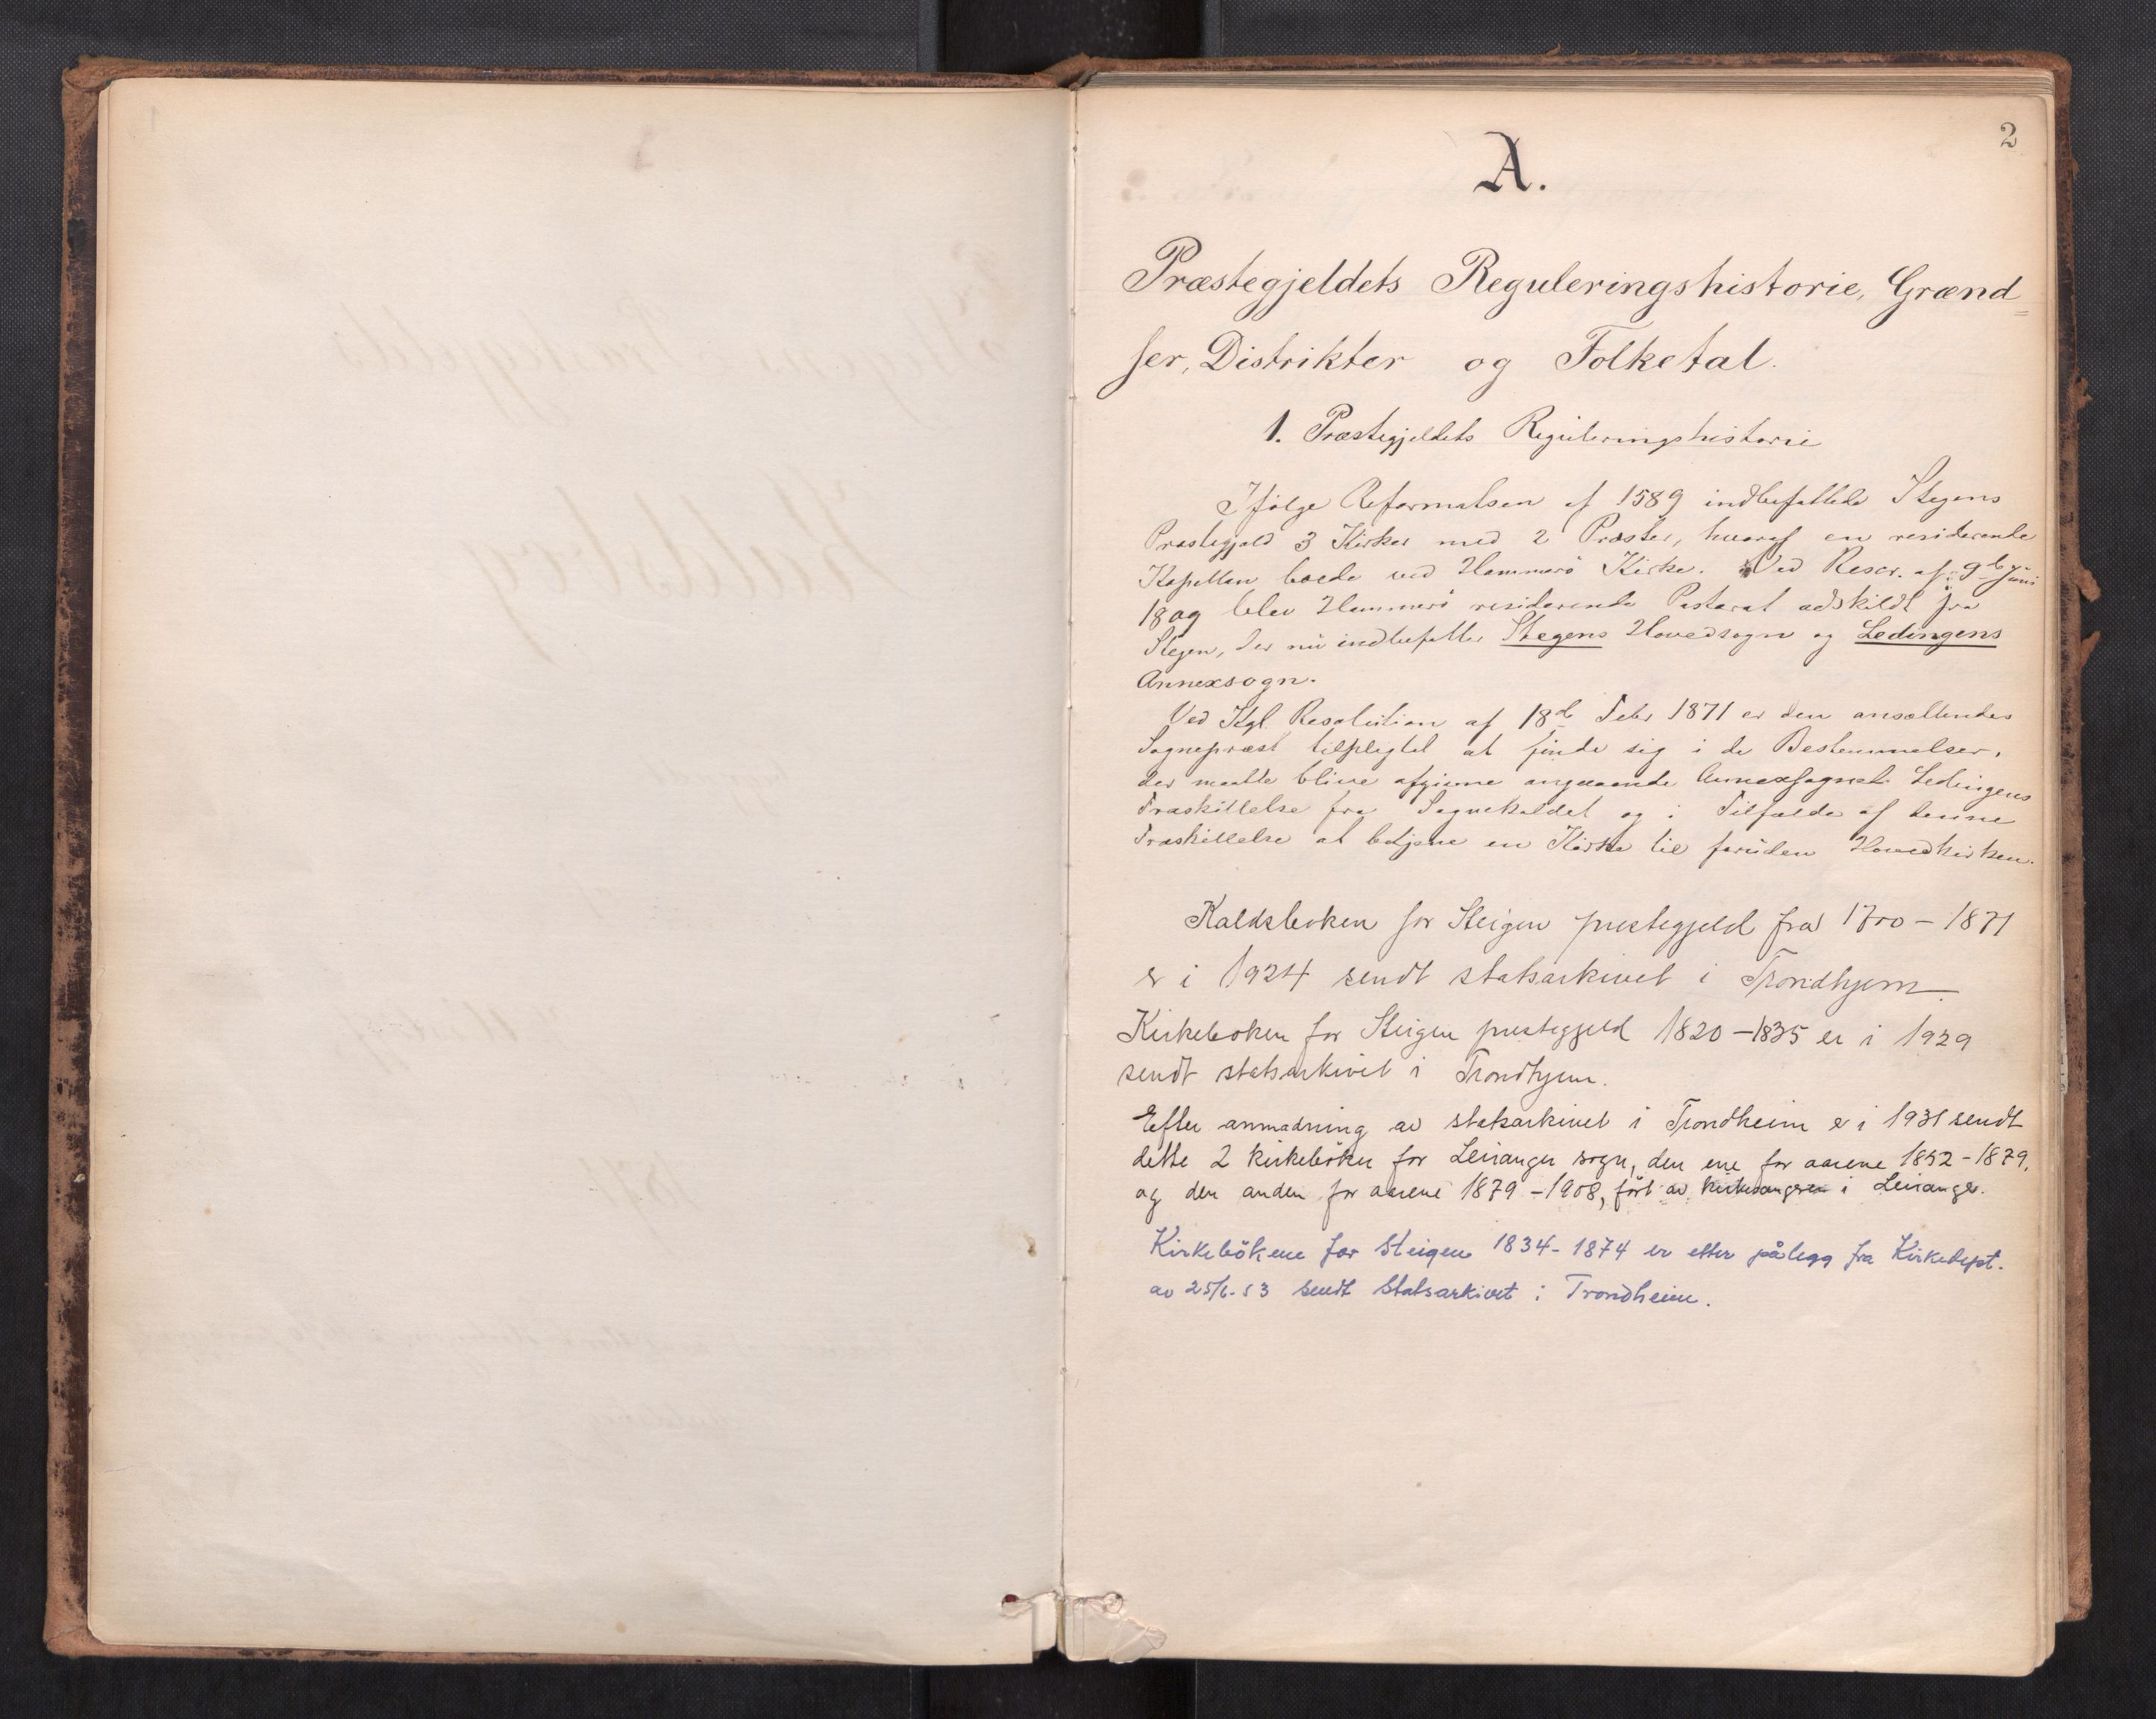 2
A.
Præstegjeldets Reguleringshistorie, Grænd=
ser, Distrikter og Folketal.
1. Præstegjeldets Reguleringshistorie
Ifølge Reformatsen af 1589 indbefattede Stegens
Præstegjeld 3 Kirker med 2 Præster, hvoraf en residerende
Kapellan boede ved Hammerö Kirke. Ved Rescr. af 9de Juni
1809 blev Hammerö residerende Pastorat adskildt fra
Stegen, der nu indbefatter Stegens Hovedsogn og Ledingens
Annexsogn.
Ved Kgl. Resolution af 18de Febr 1871 er den ansættendes
Sognepræst tilpligtet at finde sig i de Bestemmelser,
der maatte blive afgivne angaaende Annexsognet Ledingens
Fraskillelse fra Sognekaldet og i Tilfælde af denne
Fraskillelse at betjene en Kirke til foruden Hovedkirken.
Kaldsboken for Steigen prestegjeld fra 1700 – 1871
er i 1924 sendt statsarkivet i Trondhjem.
Kirkeboken for Steigen prestegjeld 1820 – 1835 er i 1929
sendt statsarkivet i Trondhjem.
Efter anmodning av statsarkivet i Trondheim er i 1931 sendt
dette 2 kirkebøker for Leiranger sogn, den ene for aarene 1852 – 1879,
og den anden for aarene 1879 – 1908, ført av kirkesangeren i Leiranger.
Kirkebökene for Steigen 1834 – 1874 er etter pålegg fra Kirkedept.
av 25/6-53 sendt Statsarkivet i Trondheim.